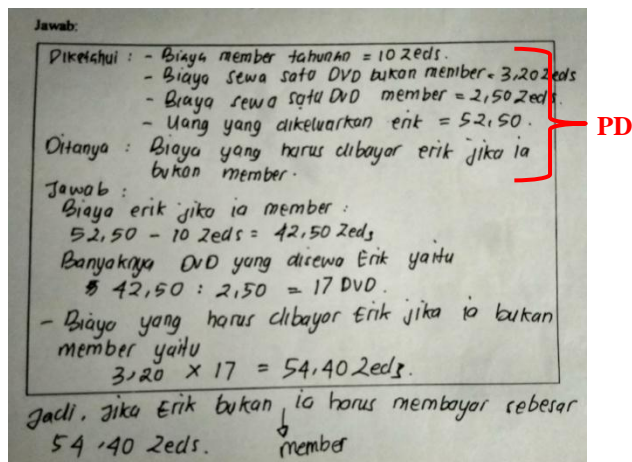 Jawab:
Diketahui : - Biaya member tahunan = 10 Zeds.
- Biaya sewa satu DVD bukan member = 3,20 Zeds
- Biaya sewa satu DVD member = 2,50 Zeds.
- Uang yang dikeluarkan erik = 52,50.
PD
Ditanya : Biaya yang harus dibayar erik jika ia
bukan member.
Jawab :
Biaya erik jika ia member :
52,50 - 10 Zeds = 42,50 Zeds
Banyaknya DVD yang disewa Erik yaitu
42,50 : 2,50 = 17 DVD.
- Biaya yang harus dibayar Erik jika ia bukan
member yaitu
3,20 × 17 = 54,40 Zeds.
Jadi, jika Erik bukan ia harus membayar sebesar
54,40 Zeds. member